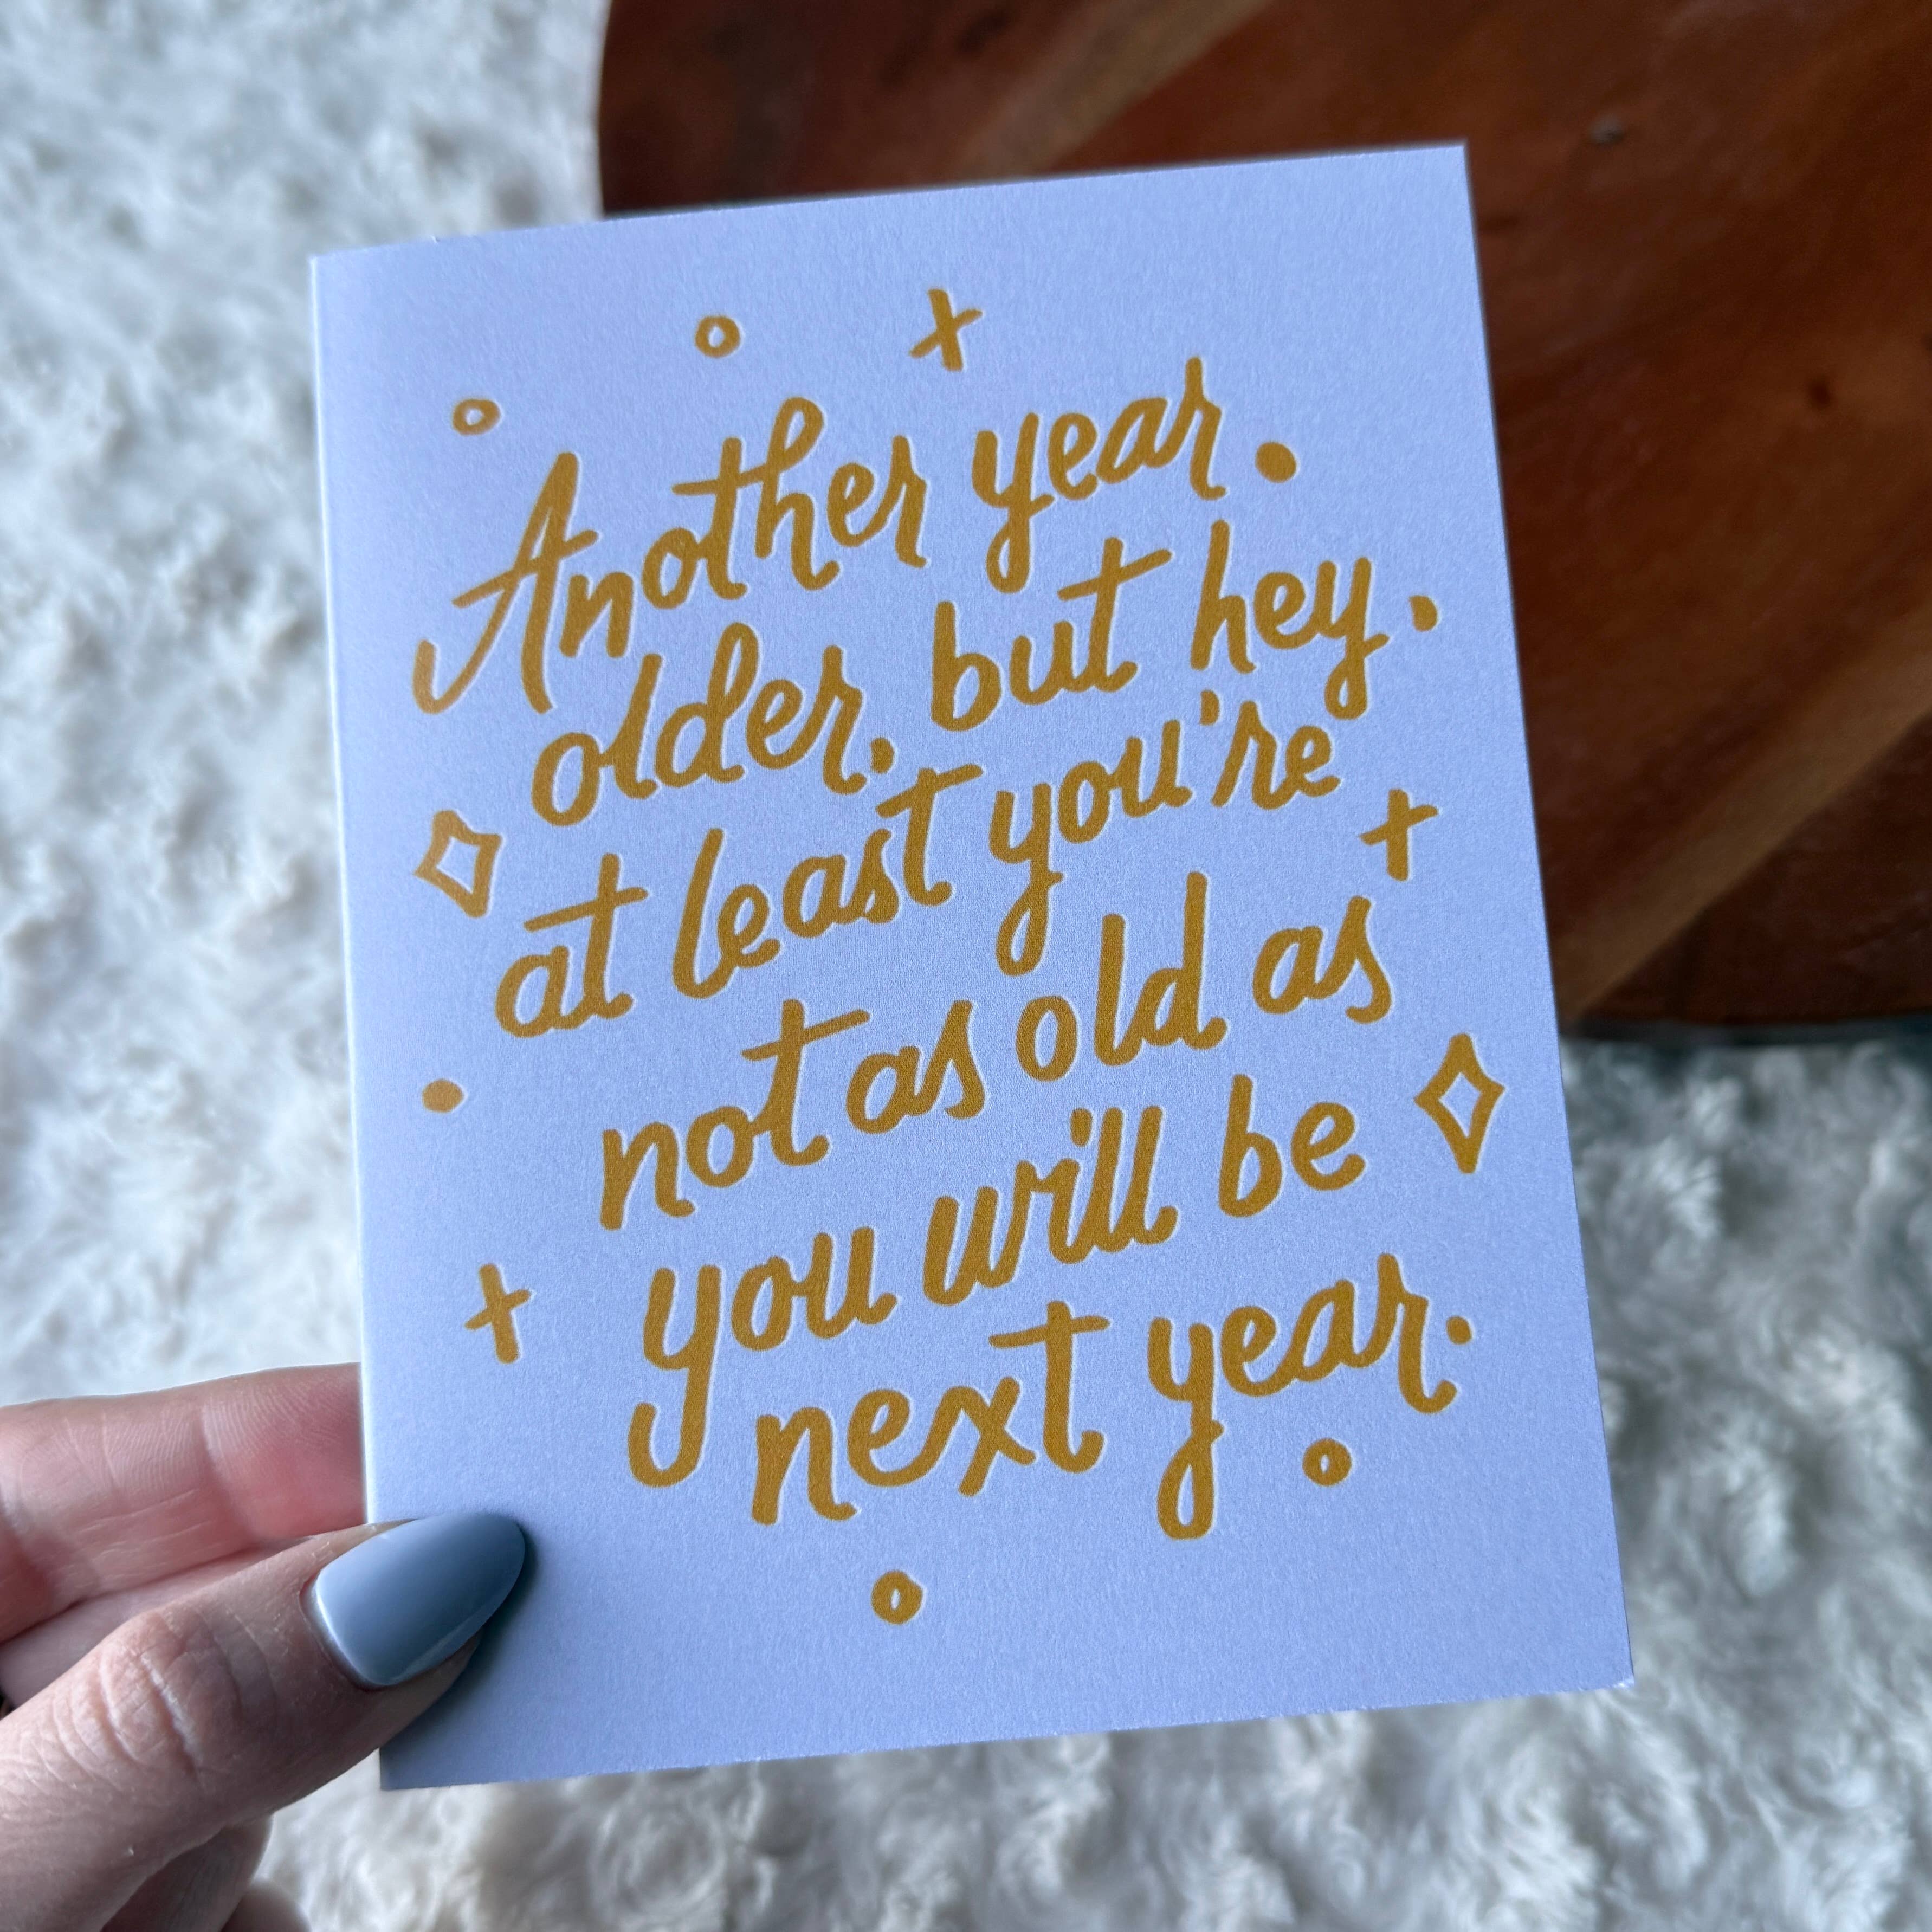 Another year
older, but hey.
at least you're
not as old as
you will be
next year.